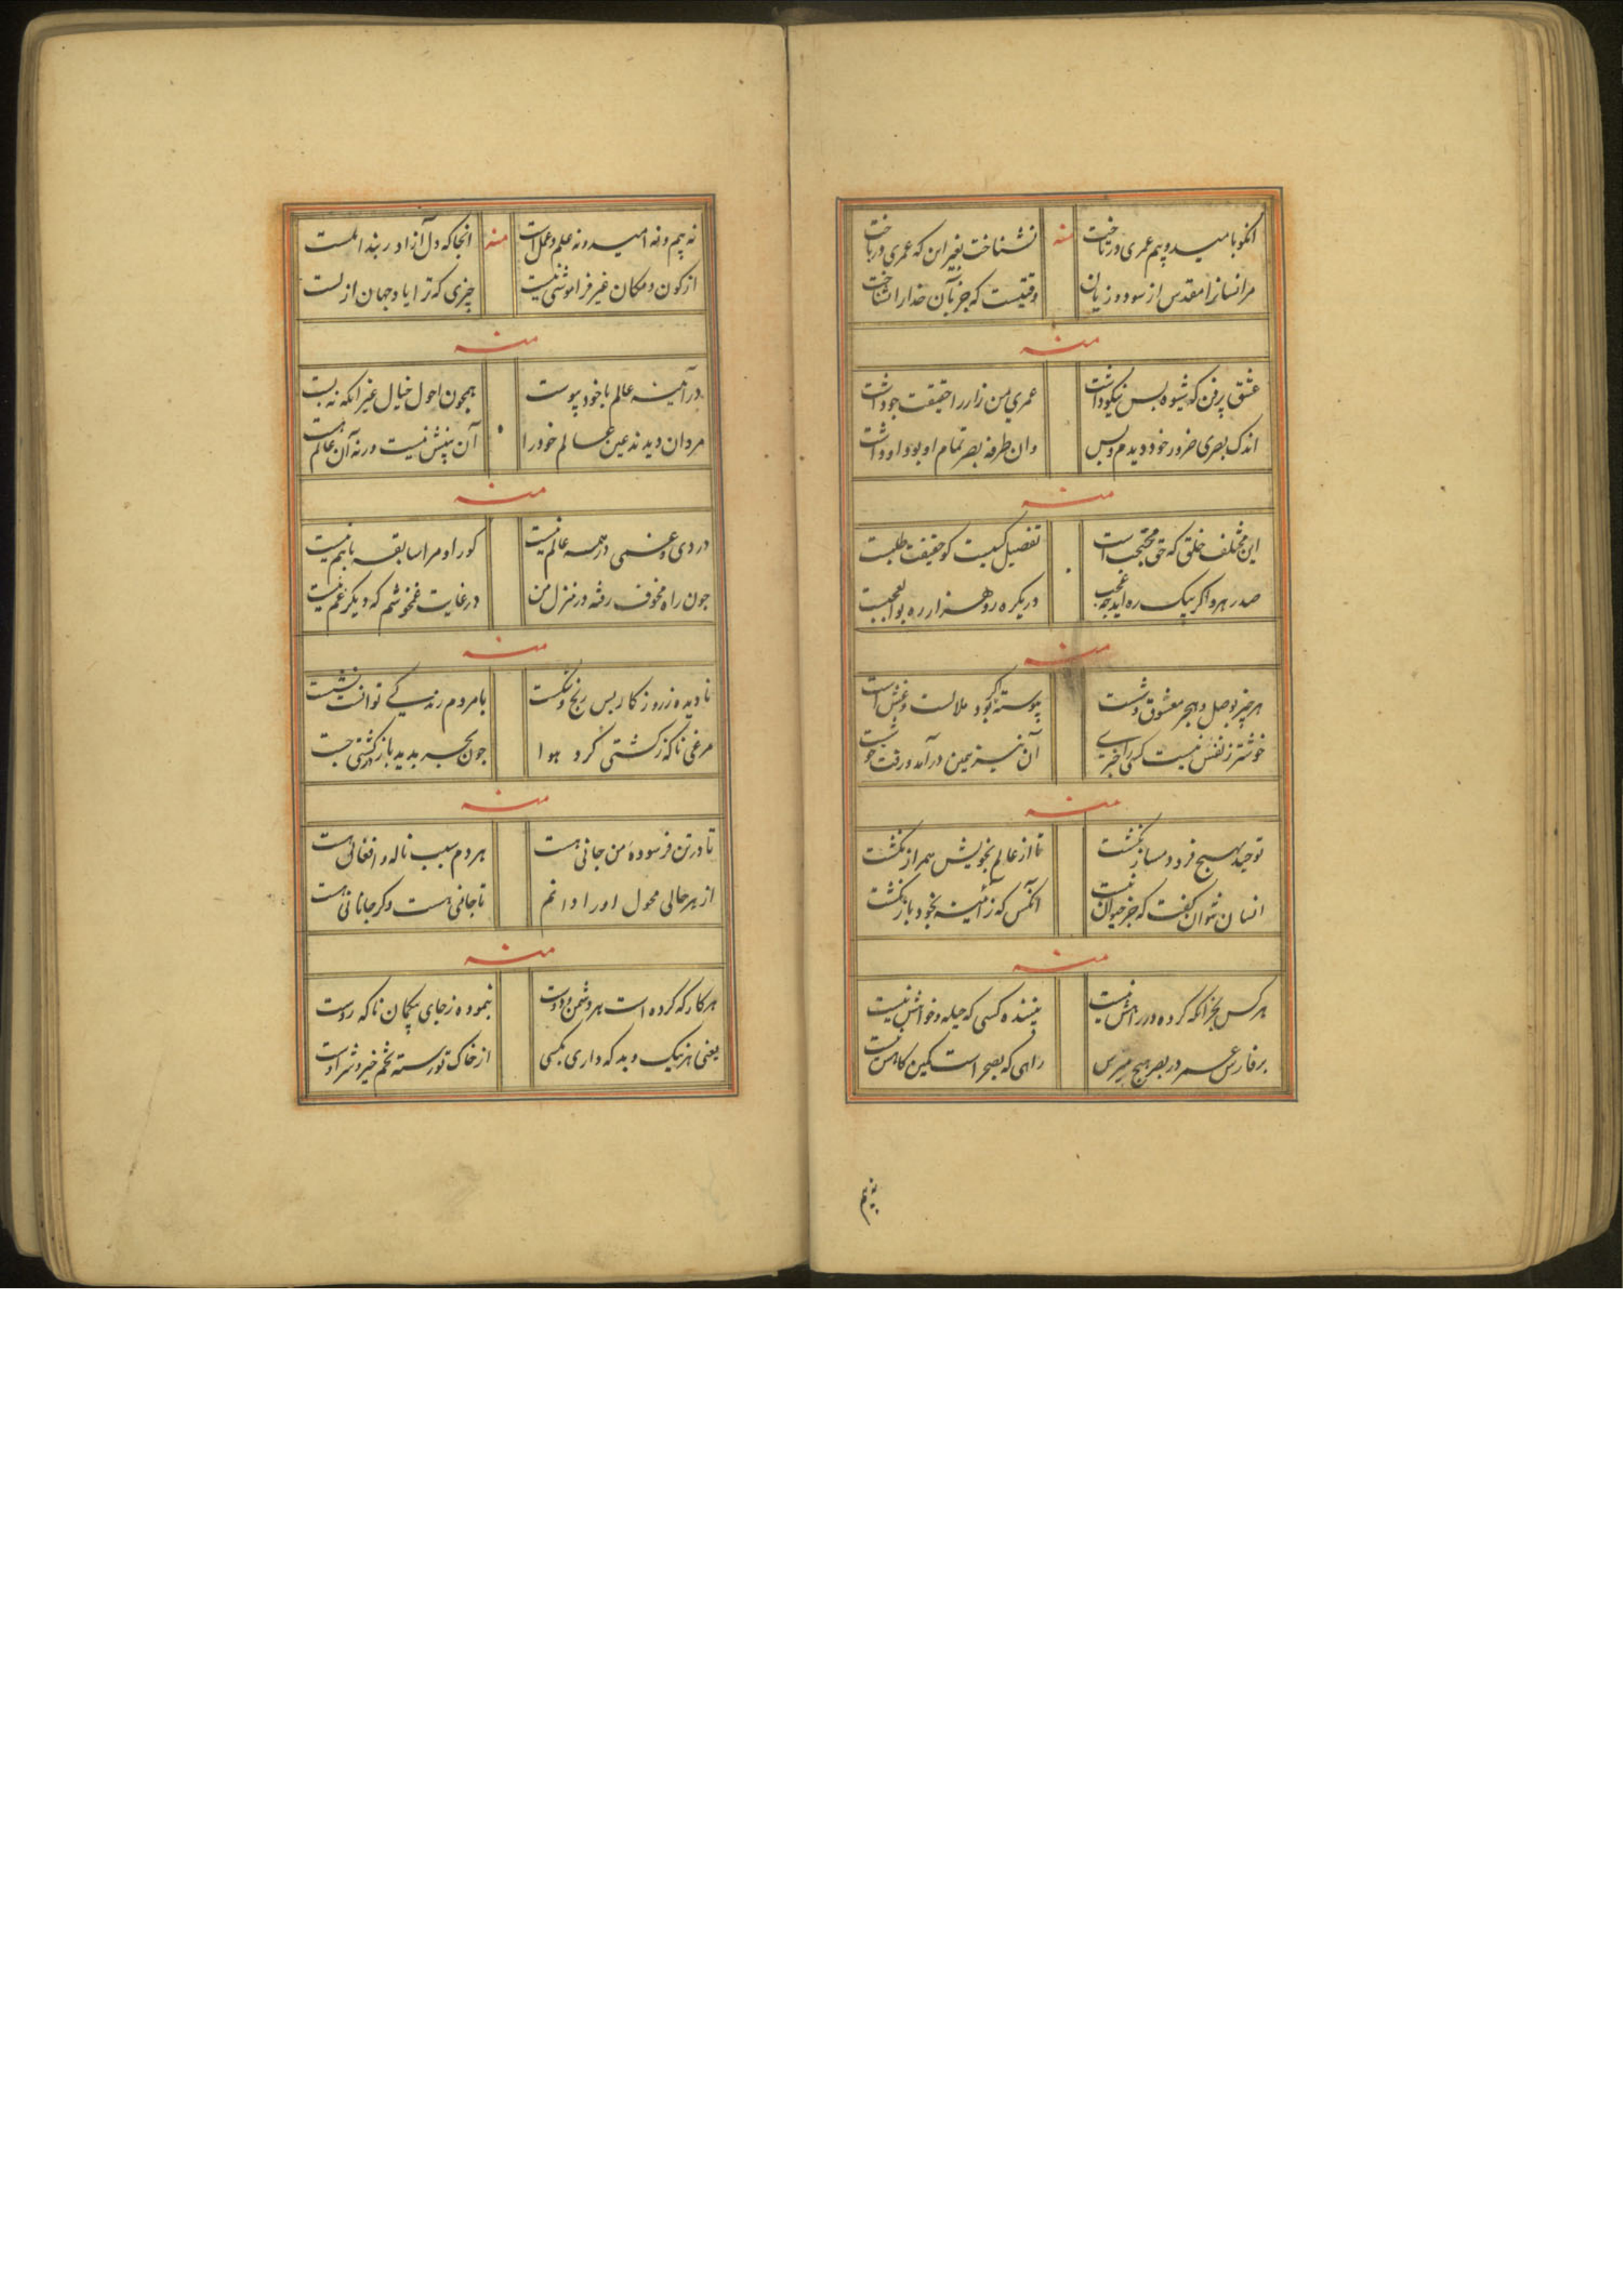 انکو بامید و بیم عمری درتاخت منه نشناخت بغیر این که عمری درباخت
مر انسانرا مقدس از سود و زیان وقتیست که جز بآن خدا را نشناخت
منه
عشق پرفن که شیوه بس نیکو داشت عمری من زار را حقیقت جو داشت
اندک بصری ضرور خود دیدم و بس وان طرفه بصر تمام او بود او داشت
منه
این مختلف خلق که حق محتجب است تفصیل کسیست کو حقیقت طلبست
صد رهرو اگر بیک ره اید چه عجب در یکره رو هزار ره بوالعجبست
منه
هر چیز بوصل و هجر معشوق وشست پیوسته کر بود ملالست و غش است
خوشتر ز نفس نیست کسی را خبری آن نیز همین در آمد و رفت خوشست
منه
توحید بهیچ فرد دمساز نکشت تا از عالم بخویش همراز نکشت
انسان نتوان کفت که جز حیوان نیست آنکس که ز آینه بخود باز نکشت
منه
هر کس بجز انکه کرده در راهش نیست بیننده کسی که حیله و خواهش نیست
بر فارس عمر در بصر هیچ مپرس راهی که بصحراست کمین کاهش نیست
نه بیم
نه بیم و نه امید و نه علم و عمل است منه انجا که دل آزاد ر بند املست
از کون و مکان غیر فراموشی نیست چیزی که ترا یاد جهان ازلست
منه
در آینه عالم با خود پیوست همچون احول خیال غیر انکه نه بست
مردان دیدند عین عالم خود را آن بینش نیست ورنه آن عالم هست
منه
دردی و غمی در همه عالم نیست کو را و مرا سابقه با هم نیست
چون راه مخوف رفته در منزل من در غایت غم خوشم که دیکر غم نیست
منه
نادیده ز روزکار بس رنج و شکست با مردم زمانه کی توانست نشست
مرغی ناکه ز کشتی کرد هوا چون بحر بدید باز کشتی جست
منه
تا در تن فرسوده من جانی هست هر دم سبب ناله و افغانی هست
از هر حالی محول او را دانم تا جانی هست و کر جانانی هست
منه
هر کار که کرده است هر دشمن و دوست بنموده ز جای بیکمان ناکه روست
یعنی هر نیک و بد که داری بکسی از خاک تو رسته تخم خیر و شر اوست